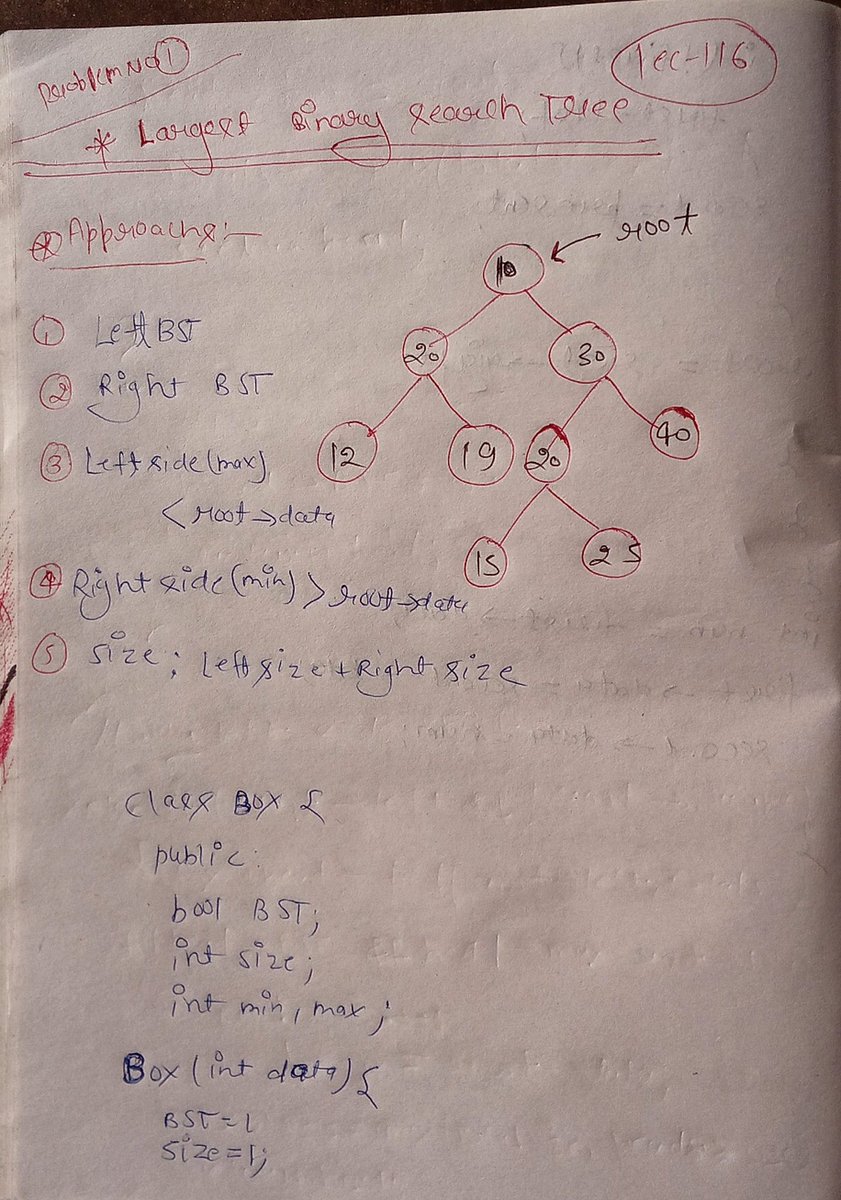 Problem No ①
Lec-116
* Largest Binary Search Tree
* Approachs:-
① Left BST
② Right BST
③ Left side (max)
< root->data
④ Right side (min) > root->data
⑤ Size; Left size + Right size
root
10
20 30
12 19 20 40
15 25
Class Box {
public:
bool BST;
int size;
int min, max;
Box (int data) {
BST=1
Size=1;